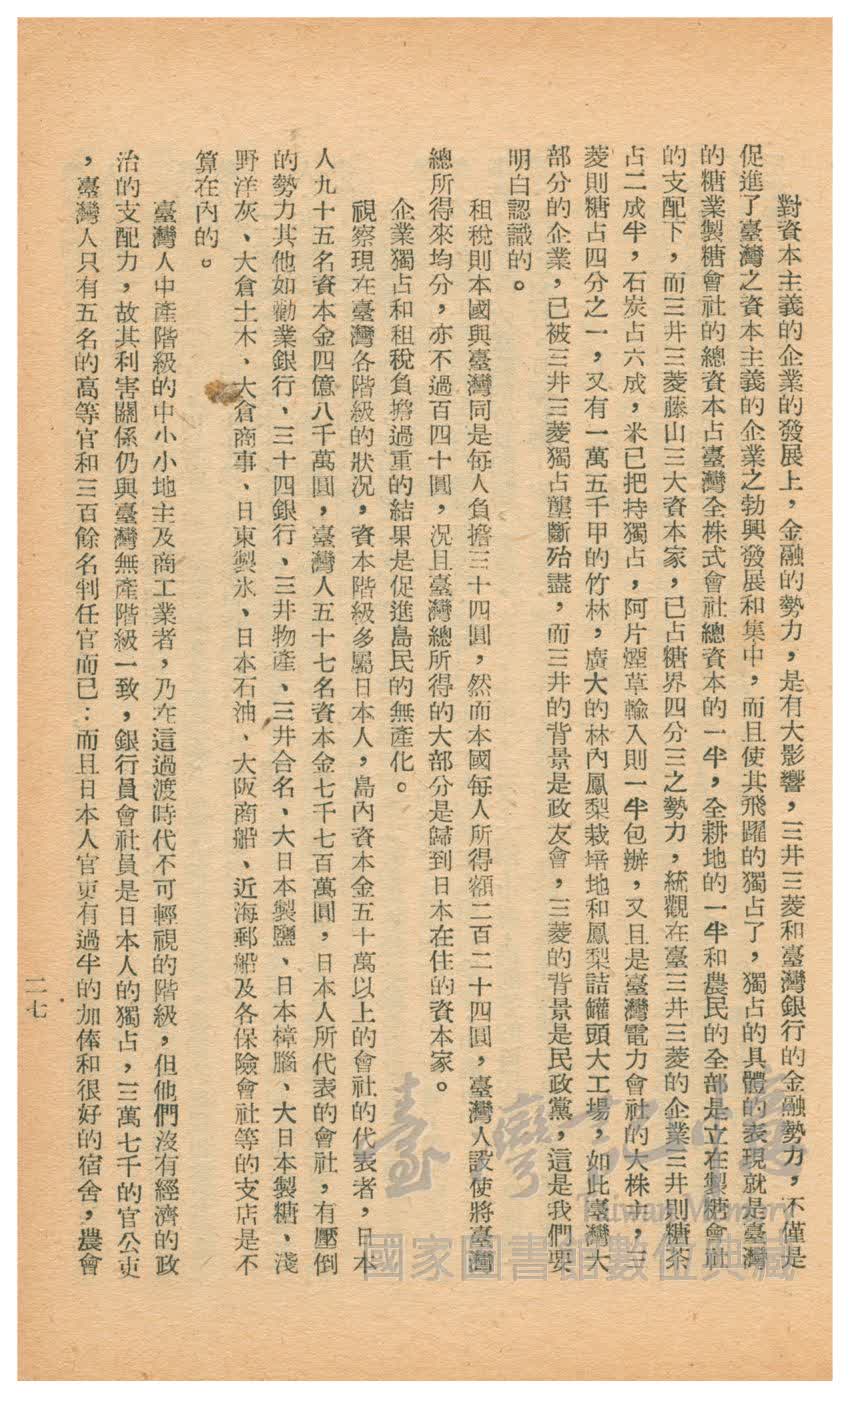 對資本主義的企業的發展上，金融的勢力，是有大影響，三井三菱和臺灣銀行的金融勢力，不僅是
促進了臺灣之資本主義的企業之勃興發展和集中，而且使其飛躍的獨占了，獨占的具體的表現就是臺灣
的糖業製糖會社的總資本占臺灣全株式會社總資本的一半，全耕地的一半和農民的全部是立在製糖會社
的支配下，而三井三菱藤山三大資本家，已占糖界四分三之勢力，統觀在臺三井三菱的企業三井則糖茶
占二成半，石炭占六成，米已把持獨占，阿片煙草輸入則一半包辦，又且是臺灣電力會社的大株主，三
菱則糖占四分之一，又有一萬五千甲的竹林，廣大的林內鳳梨栽培地和鳳梨詰罐頭大工場，如此臺灣大
部分的企業，已被三井三菱獨占壟斷殆盡，而三井的背景是政友會，三菱的背景是民政黨，這是我們要
明白認識的。
租稅則本國與臺灣同是每人負擔三十四圓，然而本國每人所得額二百二十四圓，臺灣人設使將臺灣
總所得來均分，亦不過百四十圓，况且臺灣總所得的大部分是歸到日本在住的資本家。
企業獨占和租稅負擔過重的結果是促進島民的無產化。
視察現在臺灣各階級的狀況，資本階級多屬日本人，島內資本金五十萬以上的會社的代表者，日本
人九十五名資本金四億八千萬圓，臺灣人五十七名資本金七千七百萬圓，日本人所代表的會社，有壓倒
的勢力其他如勸業銀行、三十四銀行、三井物產、三井合名、大日本製鹽、日本樟腦、大日本製糖、淺
野洋灰、大倉土木、大倉商事、日東製氷、日本石油、大阪商船、近海郵船及各保險會社等的支店是不
算在內的。
臺灣人中產階級的中小小地主及商工業者，乃在這過渡時代不可輕視的階級，但他們沒有經濟的政
治的支配力，故其利害關係仍與臺灣無產階級一致，銀行員會社員是日本人的獨占，三萬七千的官公吏
，臺灣人只有五名的高等官和三百餘名判任官而已：而且日本人官吏有過半的加俸和很好的宿舍，農會
二七
臺灣記憶
Taiwan Memory
國家圖書館數位典藏